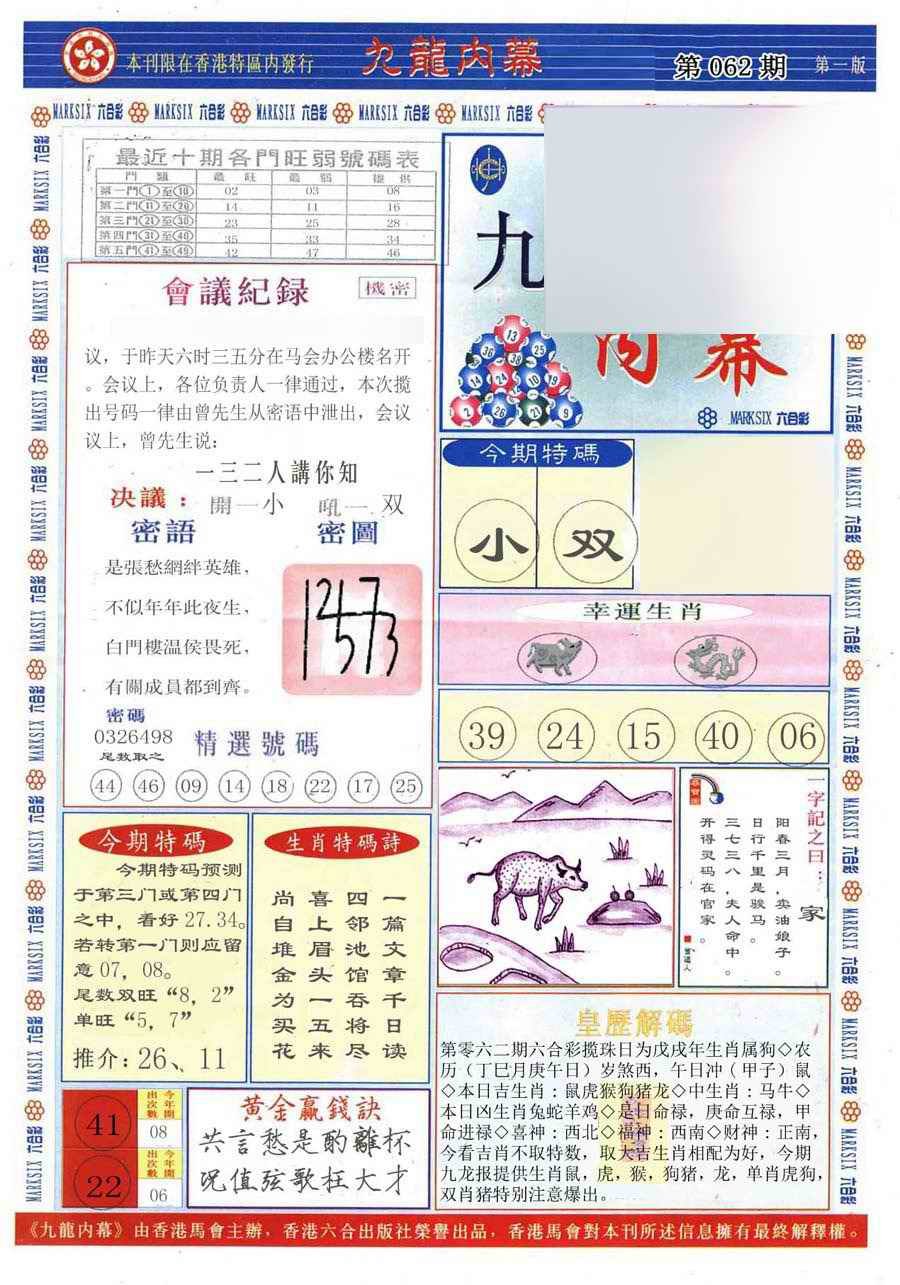 本刊限在香港特區内發行
九龍内幕
第 062 期
第一版
MARKSIX 六合彩
最近十期各門旺弱號碼表
門 類 最 旺 最 弱 提 供
第一門①至⑩ 02 03 08
第二門⑪至⑳ 14 11 16
第三門㉑至㉚ 23 25 28
第四門㉛至㊵ 35 33 34
第五門㊶至㊾ 42 47 46
會議紀録
機密
议，于昨天六时三五分在马会办公楼名开
。会议上，各位负责人一律通过，本次揽
出号码一律由曾先生从密语中泄出，会议
议上，曾先生说：
一三二人講你知
决議：開一小 吼一双
密語
是張愁網絆英雄，
不似年年此夜生，
白門樓温侯畏死，
有關成員都到齊。
密圖
密碼
0326498
尾数取之
精選號碼
44 46 09 14 18 22 17 25
九
内幕
13
36 38 25
14 24 10 19
2 26 21 9
MARKSIX 六合彩
今期特碼
小 双
幸運生肖
39 24 15 40 06
一字記之曰：家
阳春三月，卖油娘子。
日行千里是骏马。
三七三八，夫人命中。
开得灵码在官家。
今期特碼
今期特码预测
于第三门或第四门
之中，看好27.34。
若转第一门则应留
意07，08。
尾数双旺“8，2”
单旺“5，7”
推介：26、11
生肖特碼詩
一篇文章千日读
四邻池馆吞将尽
喜上眉头一五来
尚自堆金为买花
皇歷解碼
第零六二期六合彩揽珠日为戊戌年生肖属狗◇农
历（丁巳月庚午日）岁煞西，午日冲（甲子）鼠
◇本日吉生肖：鼠虎猴狗猪龙◇中生肖：马牛◇
本日凶生肖兔蛇羊鸡◇是日命禄，庚命互禄，甲
命进禄◇喜神：西北◇福神：西南◇财神：正南，
今看吉肖不取特数，取大吉生肖相配为好，今期
九龙报提供生肖鼠，虎，猴，狗猪，龙，单肖虎狗，
双肖猪特别注意爆出。
41
今年開出次數
08
22
今年開出次數
06
黄金贏錢訣
共言愁是酌離杯
况值弦歌枉大才
《九龍内幕》由香港馬會主辦，香港六合出版社榮譽出品，香港馬會對本刊所述信息擁有最終解釋權。